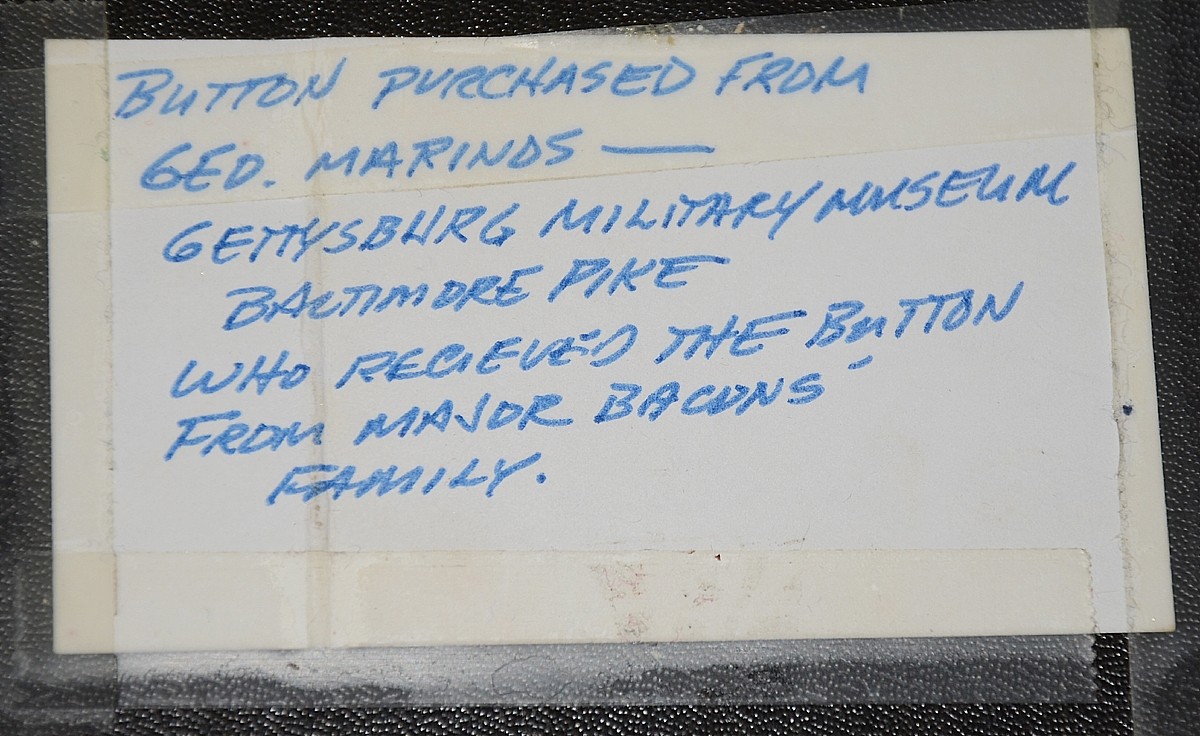 BUTTON PURCHASED FROM
GEO. MARINOS —
GETTYSBURG MILITARY MUSEUM
BALTIMORE PIKE
WHO RECIEVED THE BUTTON
FROM MAJOR BACONS'
FAMILY.